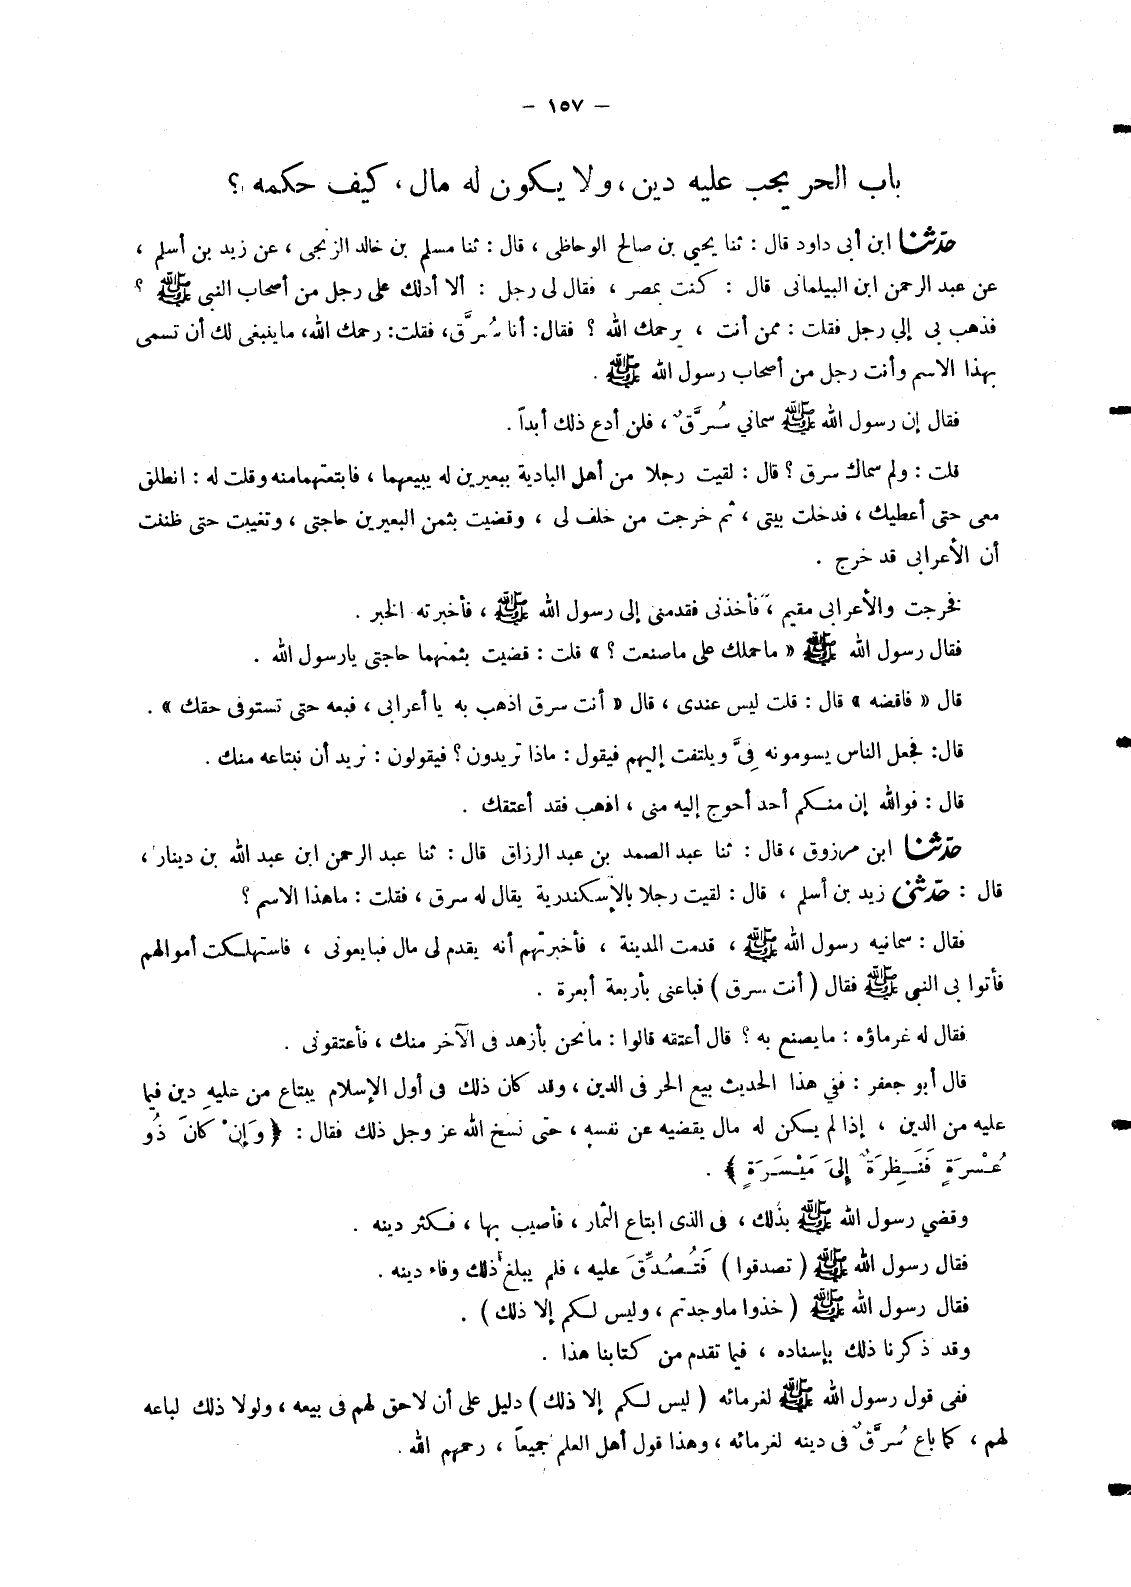 — ١٥٧ —
باب الحر يجب عليه دين، ولا يكون له مال، كيف حكمه ؟
حدّثنا ابن أبى داود قال : ثنا يحيي بن صالح الوحاظى ، قال : ثنا مسلم بن خالد الزنجى ، عن زيد بن أسلم ،
عن عبد الرحمن ابن البيلمانى قال : كنت بمصر ، فقال لى رجل : ألا أدلك على رجل من أصحاب النبى ﷺ ؟
فذهب بى إلي رجل فقلت : ممن أنت ، يرحمك الله ؟ فقال: أنا سُرَّق، فقلت: رحمك الله، ماينبغى لك أن تسمى
بهذا الاسم وأنت رجل من أصحاب رسول الله ﷺ .
فقال إن رسول الله ﷺ سماني سُرَّقٌ ، فلن أدع ذلك أبداً .
قلت : ولم سماك سرق ؟ قال : لقيت رجلا من أهل البادية ببعيرين له يبيعهما ، فابتعتهمامنه وقلت له : انطلق
معى حتى أعطيك ، فدخلت بيتى ، ثم خرجت من خلف لى ، وقضيت بثمن البعيرين حاجتى ، وتغيبت حتى ظننت
أن الأعرابى قد خرج .
فخرجت والأعرابى مقيم ، فأخذنى فقدمنى إلى رسول الله ﷺ ، فأخبرته الخبر .
فقال رسول الله ﷺ « ماحملك على ماصنعت ؟ » قلت : قضيت بثمنهما حاجتى يارسول الله .
قال « فاقضه » قال : قلت ليس عندى ، قال « أنت سرق اذهب به يا أعرابى ، فبعه حتى تستوفى حقك » .
قال: فجعل الناس يسومونه فِىَّ ويلتفت إليهم فيقول : ماذا تريدون ؟ فيقولون : نريد أن نبتاعه منك .
قال : فوالله إن منكم أحد أحوج إليه منى ، اذهب فقد أعتقك .
حدّثنا ابن مرزوق ، قال : ثنا عبد الصمد بن عبد الرزاق قال : ثنا عبد الرحمن ابن عبد الله بن دينار ،
قال : حدّثنى زيد بن أسلم ، قال : لقيت رجلا بالإسكندرية يقال له سرق ، فقلت : ماهذا الاسم ؟
فقال : سمانيه رسول الله ﷺ ، قدمت المدينة ، فأخبرتهم أنه يقدم لى مال فبايعونى ، فاستهلكت أموالهم
فأتوا بى النبى ﷺ فقال ( أنت سرق ) فباعنى بأربعة أبعرة .
فقال له غرماؤه : مايصنع به ؟ قال أعتقه قالوا : مانحن بأزهد فى الآخر منك ، فأعتقونى .
قال أبو جعفر : ففي هذا الحديث بيع الحر فى الدين ، وقد كان ذلك فى أول الإسلام يبتاع من عليه دين فيما
عليه من الدين ، إذا لم يكن له مال يقضيه عن نفسه ، حتى نسخ الله عز وجل ذلك فقال : ﴿ وَإِنْ كَانَ ذُو
عُسْرَةٍ فَنَظِرَةٌ إِلىَ مَيْسَرَةٍ ﴾ .
وقضي رسول الله ﷺ بذلك ، فى الذى ابتاع الثمار ، فأصيب بها ، فكثر دينه .
فقال رسول الله ﷺ ( تصدقوا ) فَتُصُدِّقَ عليه ، فلم يبلغ ذلك وفاء دينه .
فقال رسول الله ﷺ ( خذوا ماوجدتم ، وليس لكم إلا ذلك ) .
وقد ذكرنا ذلك بإسناده ، فيما تقدم من كتابنا هذا .
ففى قول رسول الله ﷺ لغرمائه ( ليس لكم إلا ذلك ) دليل على أن لاحق لهم فى بيعه ، ولولا ذلك لباعه
لهم ، كما باع سُرَّقٌ فى دينه لغرمائه ، وهذا قول أهل العلم جميعاً ، رحمهم الله .